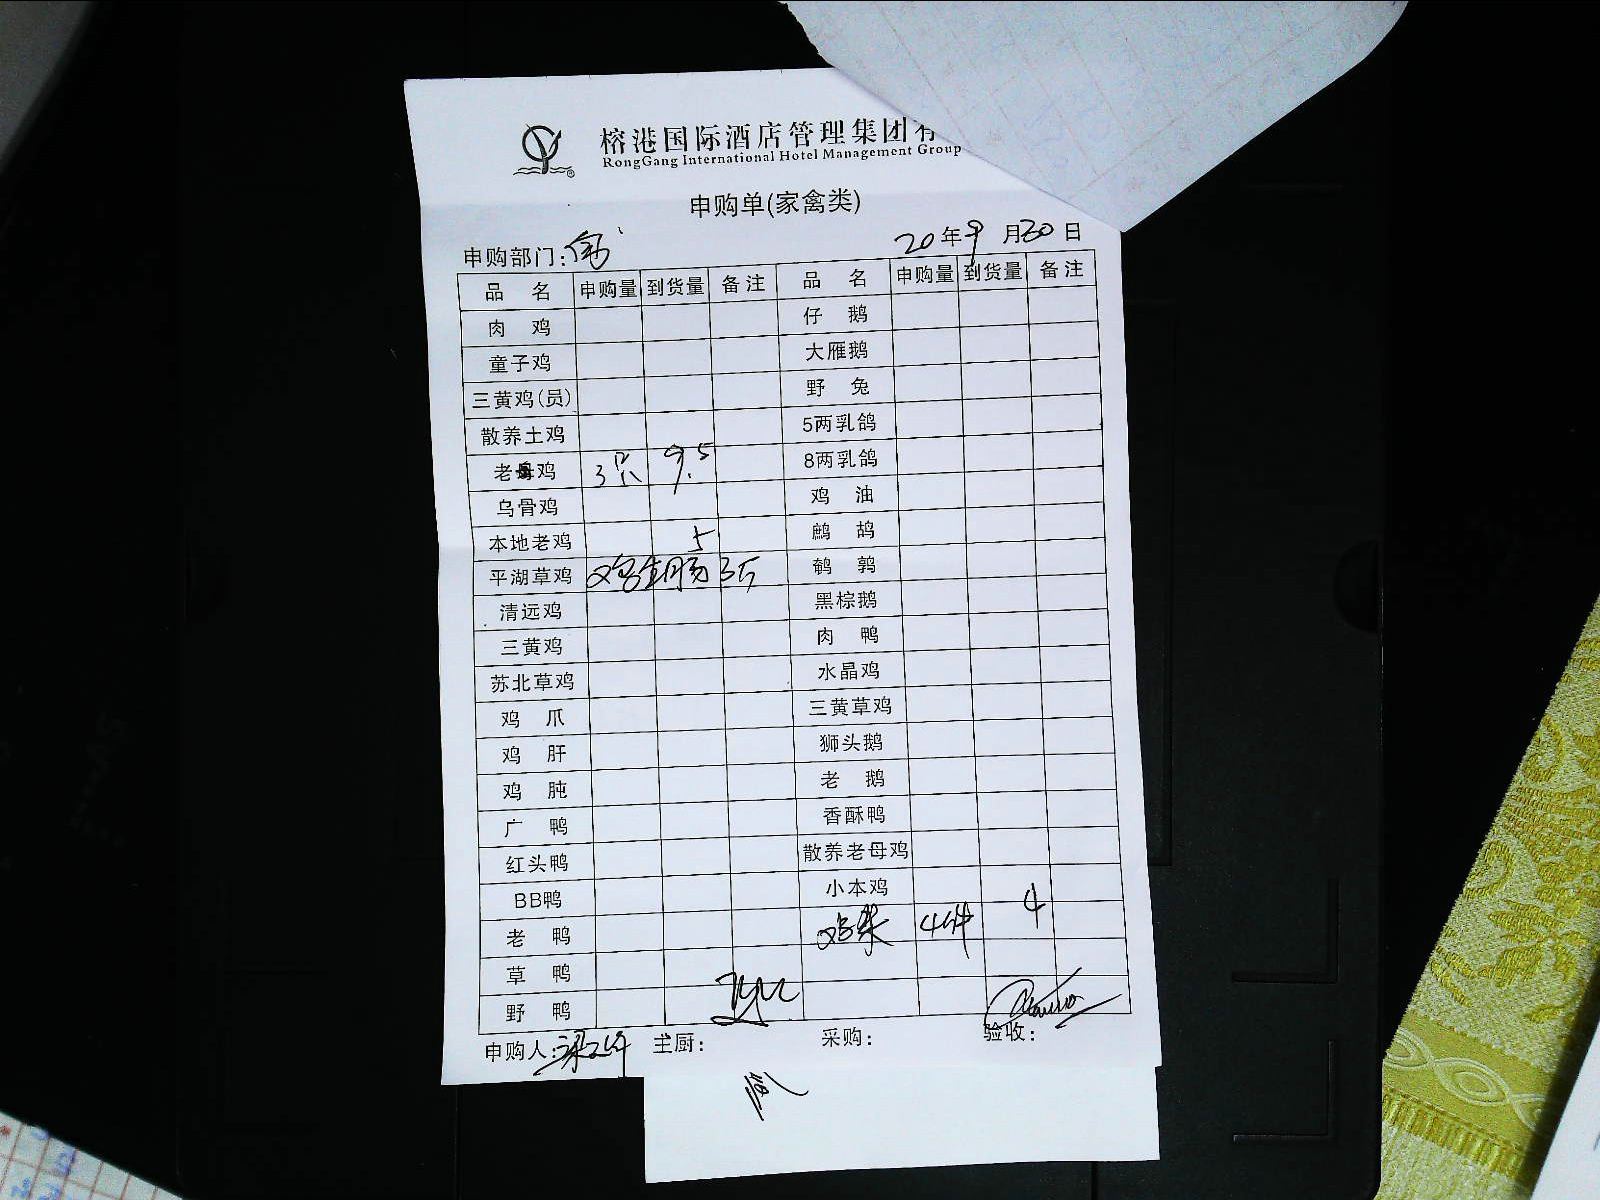 榕港国际酒店管理集团有
RongGang International Hotel Management Group
申购单(家禽类)
申购部门:
20年9月30日
品名 申购量 到货量 备注 品名 申购量 到货量 备注
肉鸡 仔鹅
童子鸡 大雁鹅
三黄鸡(员) 野兔
散养土鸡 5两乳鸽
老母鸡 3只 9.5 8两乳鸽
乌骨鸡 鸡油
本地老鸡 5 鹧鸪
平湖草鸡 鸡生肠3斤 鹌鹑
清远鸡 黑棕鹅
三黄鸡 肉鸭
苏北草鸡 水晶鸡
鸡爪 三黄草鸡
鸡肝 狮头鹅
鸡肫 老鹅
广鸭 香酥鸭
红头鸭 散养老母鸡
BB鸭 小本鸡
老鸭 鸡架 4件 4
草鸭
野鸭
申购人: 主厨: 采购: 验收: